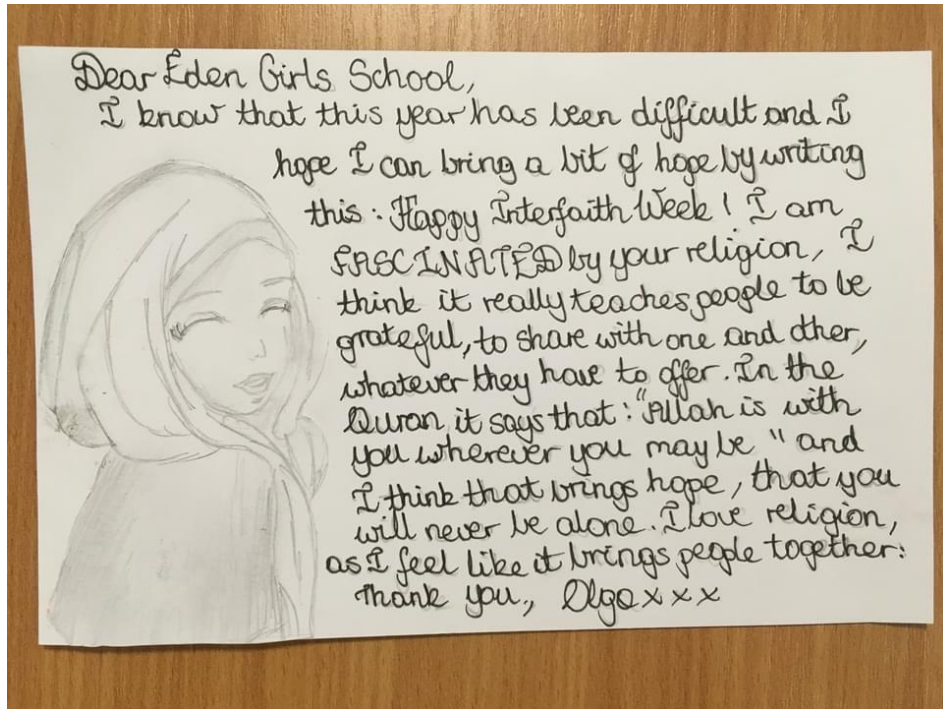 Dear Eden Girls School,
I know that this year has been difficult and I
hope I can bring a bit of hope by writing
this : Happy Interfaith Week ! I am
FASCINATED by your religion, I
think it really teaches people to be
grateful, to share with one and other,
whatever they have to offer. In the
Quran it says that : "Allah is with
you wherever you may be " and
I think that brings hope, that you
will never be alone. I love religion,
as I feel like it brings people together:
Thank you., Olga x x x